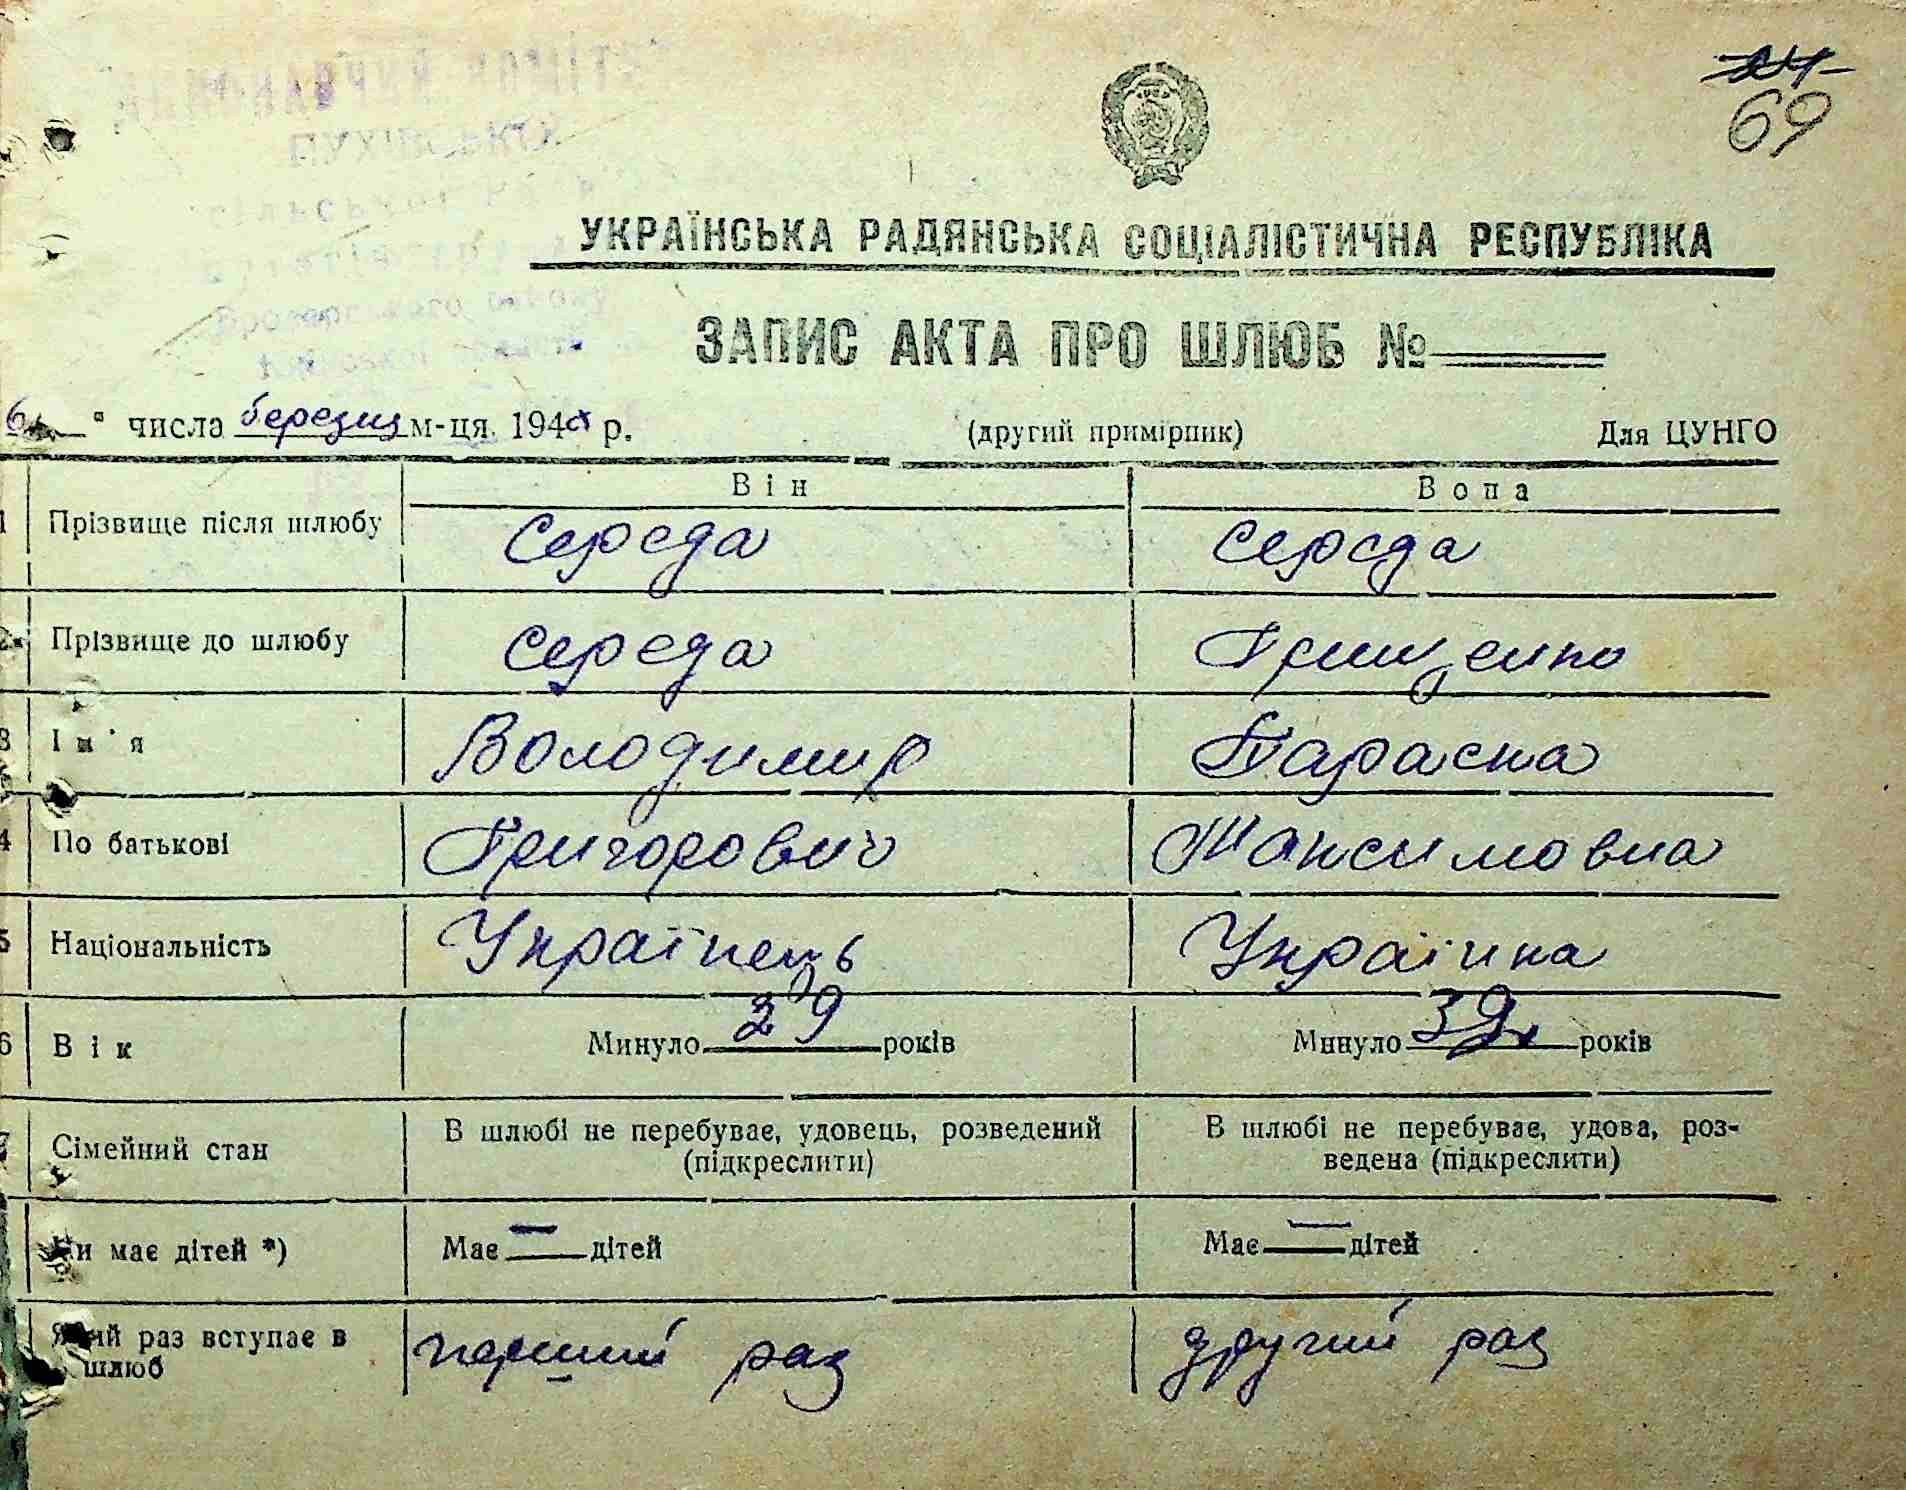 69
УКРАЇНСЬКА РАДЯНСЬКА СОЦІАЛІСТИЧНА РЕСПУБЛІКА
ЗАПИС АКТА ПРО ШЛЮБ №
6 " числа березня м-ця 194 р.
(другий примірник)
Для ЦУНГО
Він
Вона
1 Прізвище після шлюбу Середа Середа
2 Прізвище до шлюбу Середа Грищенко
3 Ім'я Володимир Параска
4 По батькові Григорович Максимовна
5 Національність Українець Українка
6 Вік Минуло 29 років Минуло 39 років
7 Сімейний стан В шлюбі не перебуває, удовець, розведений В шлюбі не перебуває, удова, роз-
(підкреслити) ведена (підкреслити)
Чи має дітей *) Має — дітей Має — дітей
Який раз вступає в перший раз другий раз
шлюб